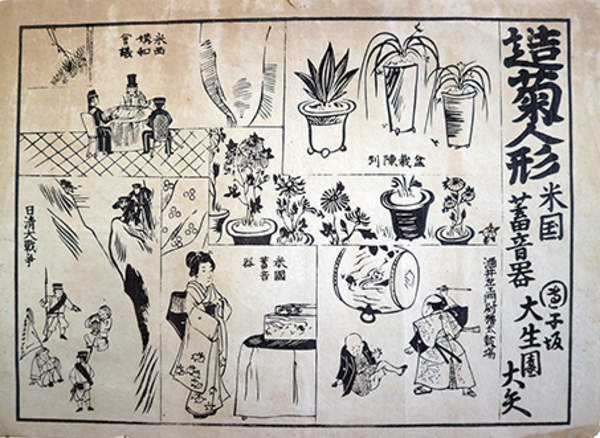 造菊人形
米国
蓄音器
子坂
大生園
大矢
盆栽陳列
米西
媾和
會議
酒井左エ門尉 太鼓場
米國
蓄音
器
日清大戰爭